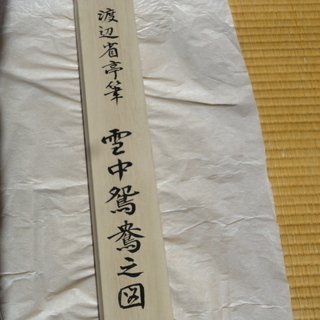 渡辺省亭筆
雪中鴛鴦之図